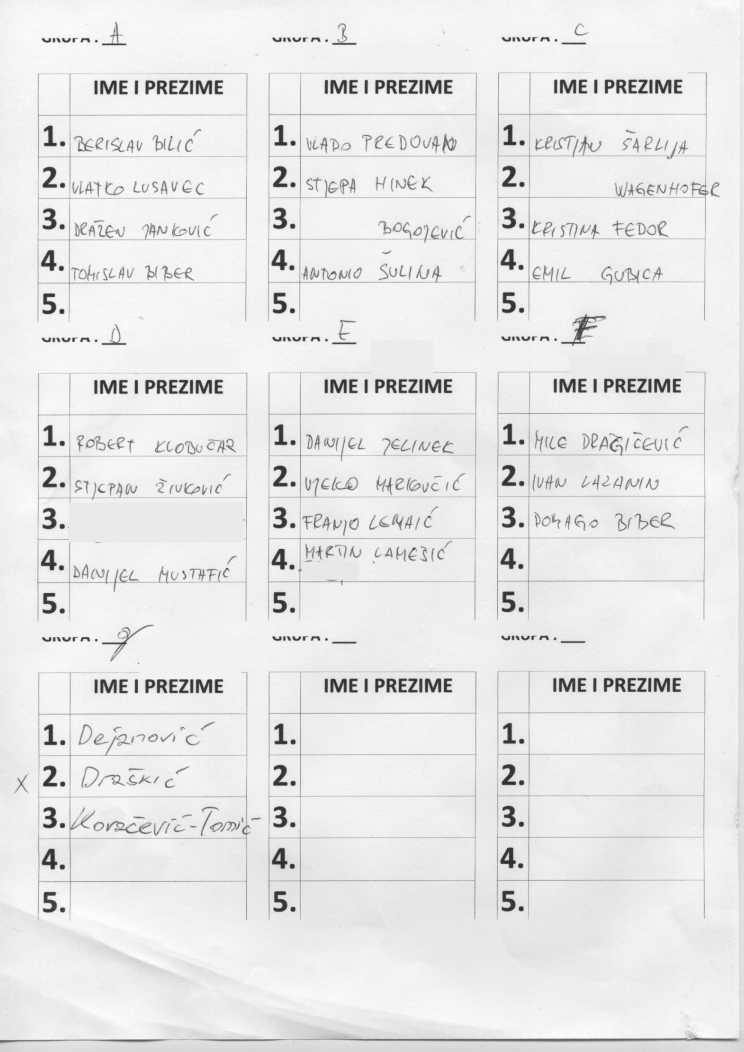 GRUPA: A
IME I PREZIME
1. BERISLAV BILIĆ
2. VLATKO LUSAVEC
3. DRAŽEN JANKOVIĆ
4. TOMISLAV BIBER
5.
GRUPA: B
IME I PREZIME
1. VLADO PREDOVAN
2. STJEPA HINEK
3. BOGOJEVIĆ
4. ANTONIO ŠULINA
5.
GRUPA: C
IME I PREZIME
1. KRISTJAN ŠARLIJA
2. WAGENHOFER
3. KRISTINA FEDOR
4. EMIL GUBICA
5.
GRUPA: D
IME I PREZIME
1. ROBERT KLOBUČAR
2. STJEPAN ŽIVKOVIĆ
3.
4. DANIJEL MUSTAFIĆ
5.
GRUPA: E
IME I PREZIME
1. DANIJEL JELINEK
2. MARKOVČIĆ
3. FRANJO LEMAIĆ
4. MARTIN LAMEŠIĆ
5.
GRUPA: F
IME I PREZIME
1. MILE DRAGIČEVIĆ
2. IVAN LAZANIN
3. DOMAGO BIBER
4.
5.
GRUPA: g
IME I PREZIME
1. Dejanović
X 2. Draškić
3. Kovačević-Tomić
4.
5.
GRUPA:
IME I PREZIME
1.
2.
3.
4.
5.
GRUPA:
IME I PREZIME
1.
2.
3.
4.
5.